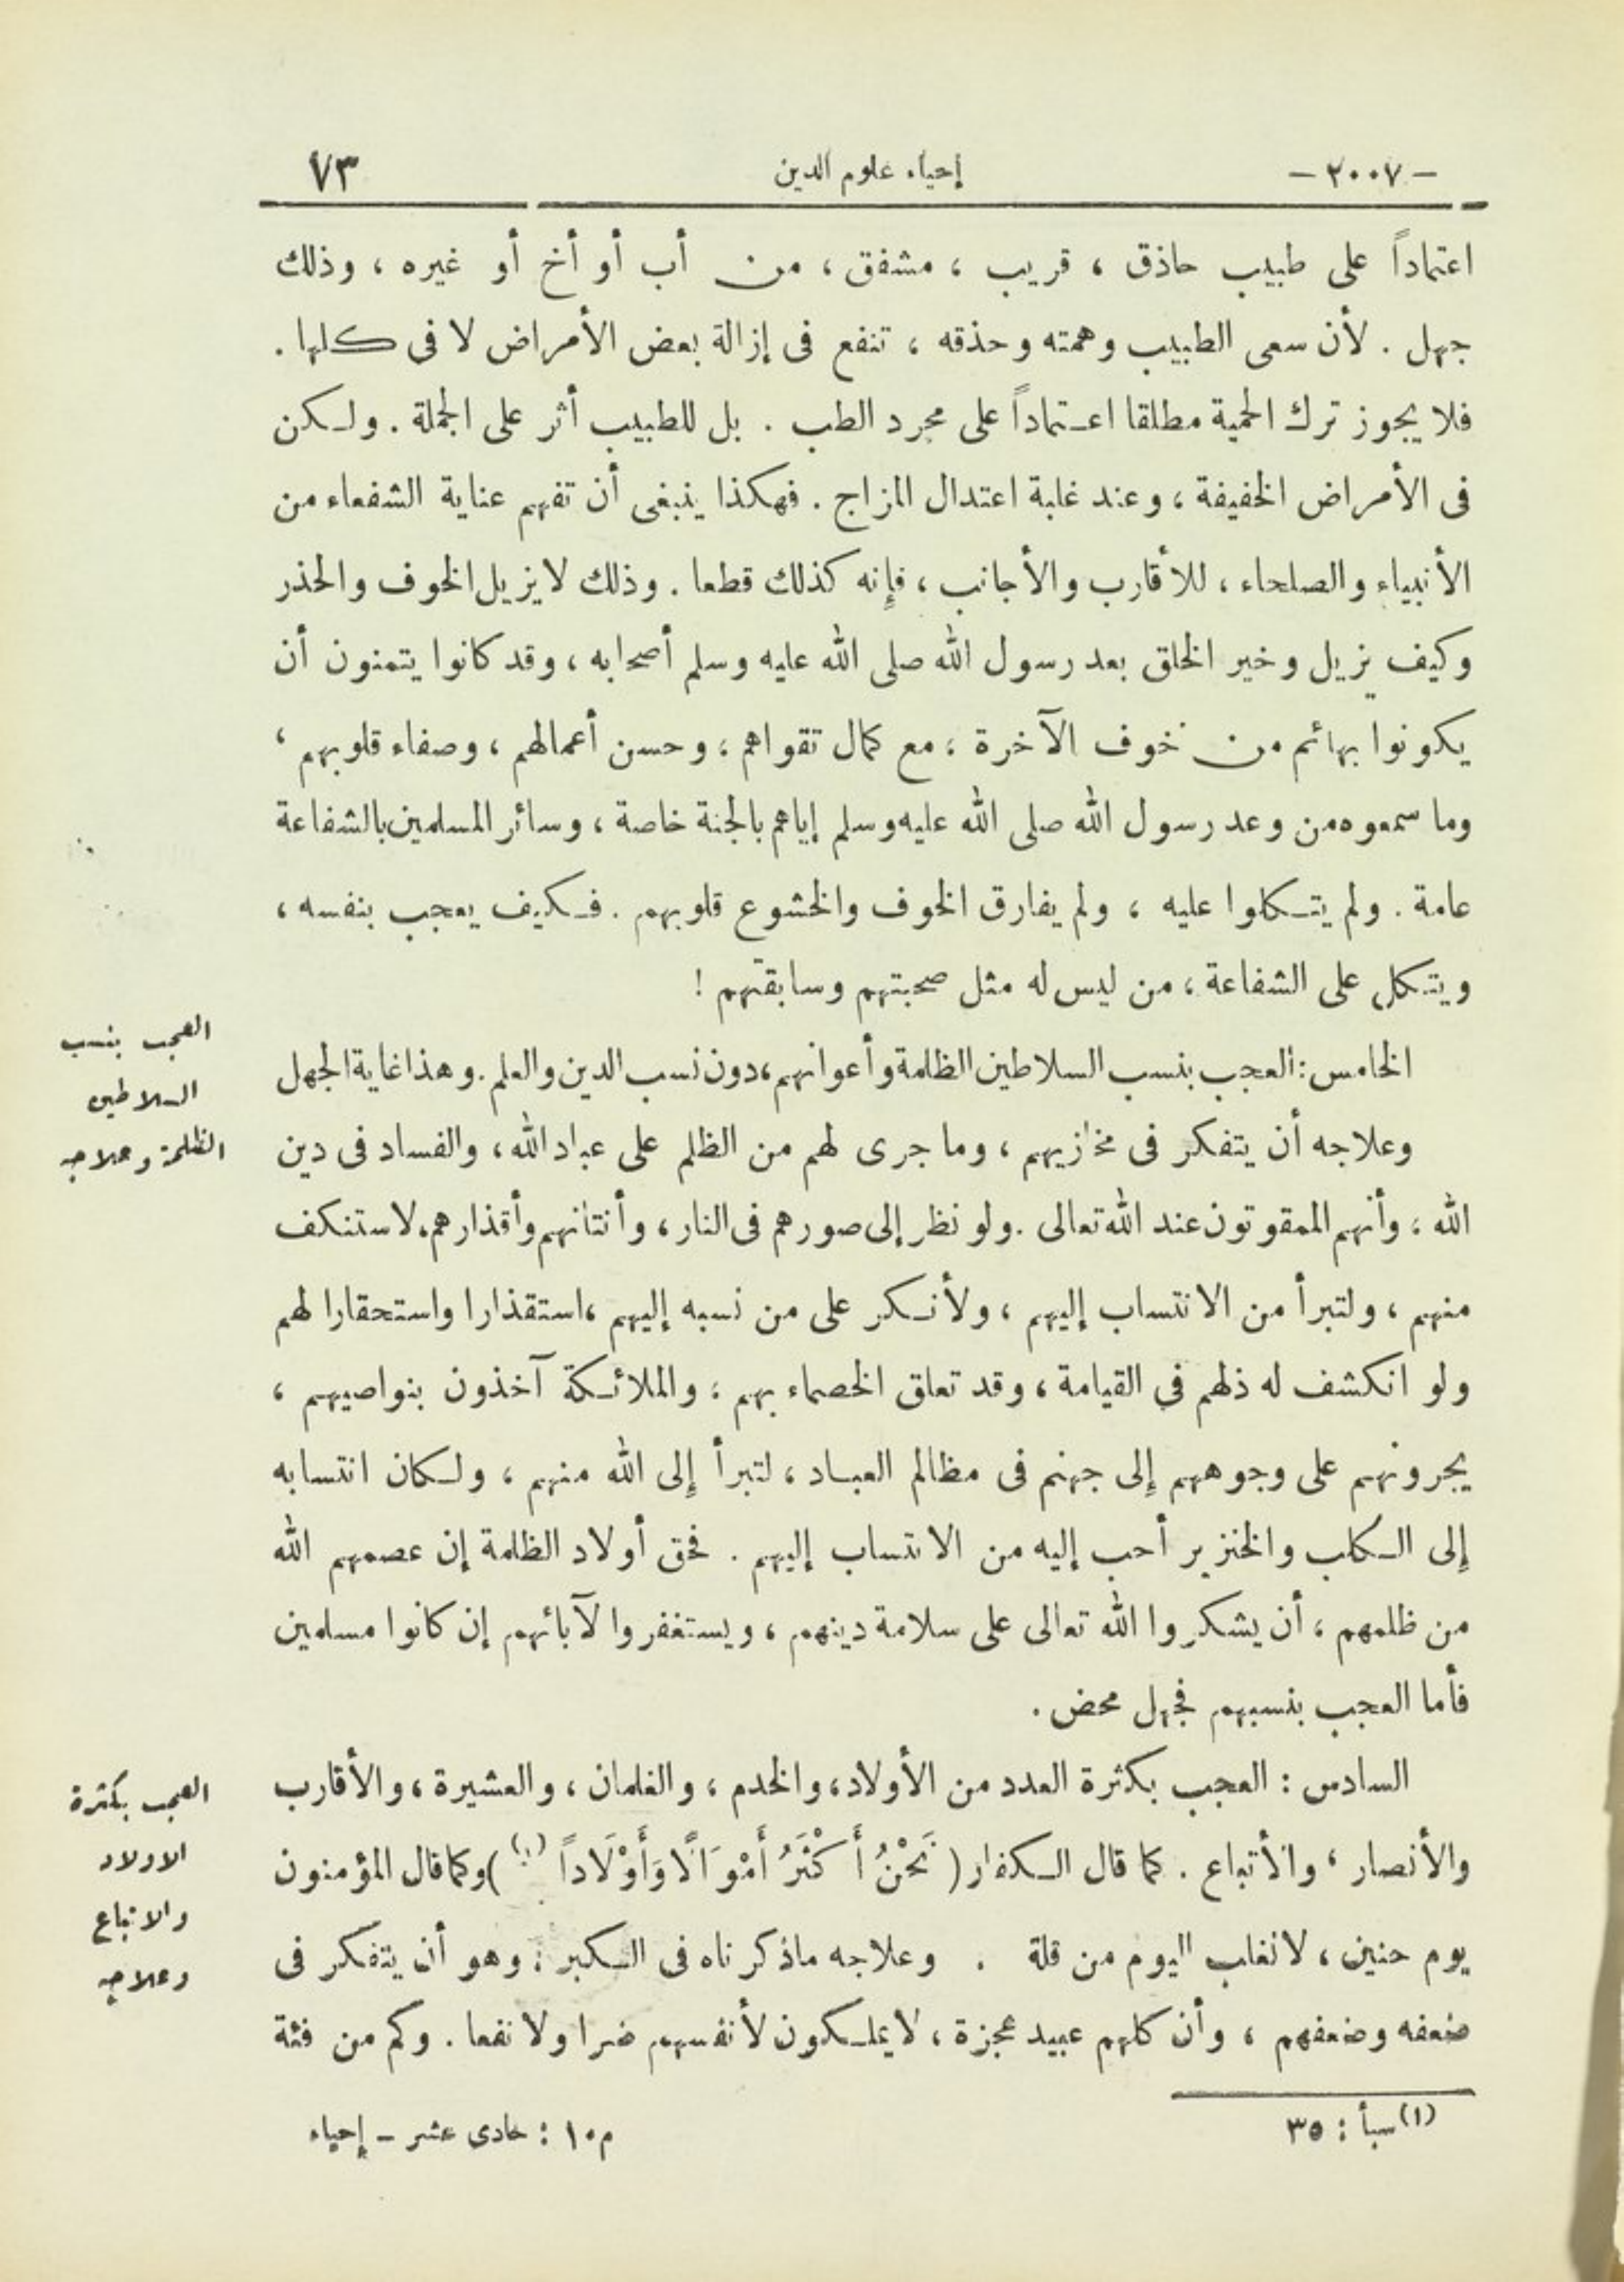 - ٢٠٠٧ - إحياء علوم الدين ٧٣
اعتماداً على طبيب حاذق ، قريب ، مشفق ، من أب أو أخ أو غيره ، وذلك
جهل . لأن سعى الطبيب وهمته وحذقه ، تنفع فى إزالة بعض الأمراض لا فى كلها .
فلا يجوز ترك الحمية مطلقا اعتماداً على مجرد الطب . بل للطبيب أثر على الجملة . ولكن
فى الأمراض الخفيفة ، وعند غلبة اعتدال المزاج . فهكذا ينبغى أن تفهم عناية الشفعاء من
الأنبياء والصلحاء ، للأقارب والأجانب ، فإنه كذلك قطعا . وذلك لا يزيل الخوف والحذر
وكيف يزيل وخير الخلق بعد رسول الله صلى الله عليه وسلم أصحابه ، وقد كانوا يتمنون أن
يكونوا بهائم من خوف الآخرة ، مع كمال تقواهم ، وحسن أعمالهم ، وصفاء قلوبهم ،
وما سمعوه من وعد رسول الله صلى الله عليه وسلم إياهم بالجنة خاصة ، وسائر المسلمين بالشفاعة
عامة . ولم يتكلوا عليه ، ولم يفارق الخوف والخشوع قلوبهم . فكيف يعجب بنفسه ،
ويتكل على الشفاعة ، من ليس له مثل صحبتهم وسابقتهم !
الخامس : العجب بنسب السلاطين الظلمة وأعوانهم ، دون نسب الدين والعلم . وهذا غاية الجهل
وعلاجه أن يتفكر فى مخازيهم ، وما جرى لهم من الظلم على عباد الله ، والفساد فى دين
الله ، وأنهم الممقوتون عند الله تعالى . ولو نظر إلى صورهم فى النار ، وأنتانهم وأقذارهم ، لاستنكف
منهم ، ولتبرأ من الانتساب إليهم ، ولأنكر على من نسبه إليهم ، استقذارا واستحقارا لهم
ولو انكشف له ذلهم في القيامة ، وقد تعلق الخصماء بهم ، والملائكة آخذون بنواصيهم ،
يجرونهم على وجوههم إلى جهنم فى مظالم العباد ، لتبرأ إلى الله منهم ، ولكان انتسابه
إلى الكلب والخنزير أحب إليه من الانتساب إليهم . فحق أولاد الظلمة إن عصمهم الله
من ظلمهم ، أن يشكروا الله تعالى على سلامة دينهم ، ويستغفروا لآبائهم إن كانوا مسلمين
فأما العجب بنسبهم فجهل محض .
السادس : العجب بكثرة العدد من الأولاد ، والخدم ، والغلمان ، والعشيرة ، والأقارب
والأنصار ، والأتباع . كما قال الكفار ( نَحْنُ أَكْثَرُ أَمْوَالًا وَأَوْلَاداً (١) ) وكما قال المؤمنون
يوم حنين ، لا نغلب اليوم من قلة . وعلاجه ماذكرناه فى الكبر ، وهو أن يتفكر فى
ضعفه وضعفهم ، وأن كلهم عبيد عجزة ، لا يملكون لأنفسهم ضرا ولا نفعا . وكم من فئة
العجب بنسب
السلاطين
الظلمة وعلاجه
العجب بكثرة
الاولاد
والاتباع
وعلاجه
(١) سبأ : ٣٥
م ١٠ : حادى عشر - إحياء